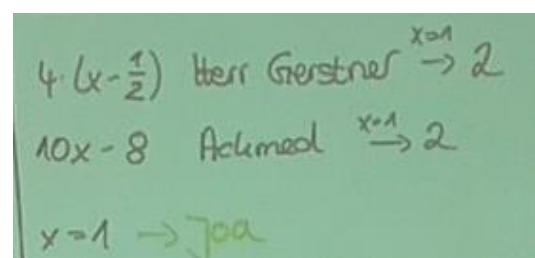 4·(x-1/2) Herr Gerstner x=1→ 2
10x - 8 Ackmed x=1→ 2
x=1 → Joa